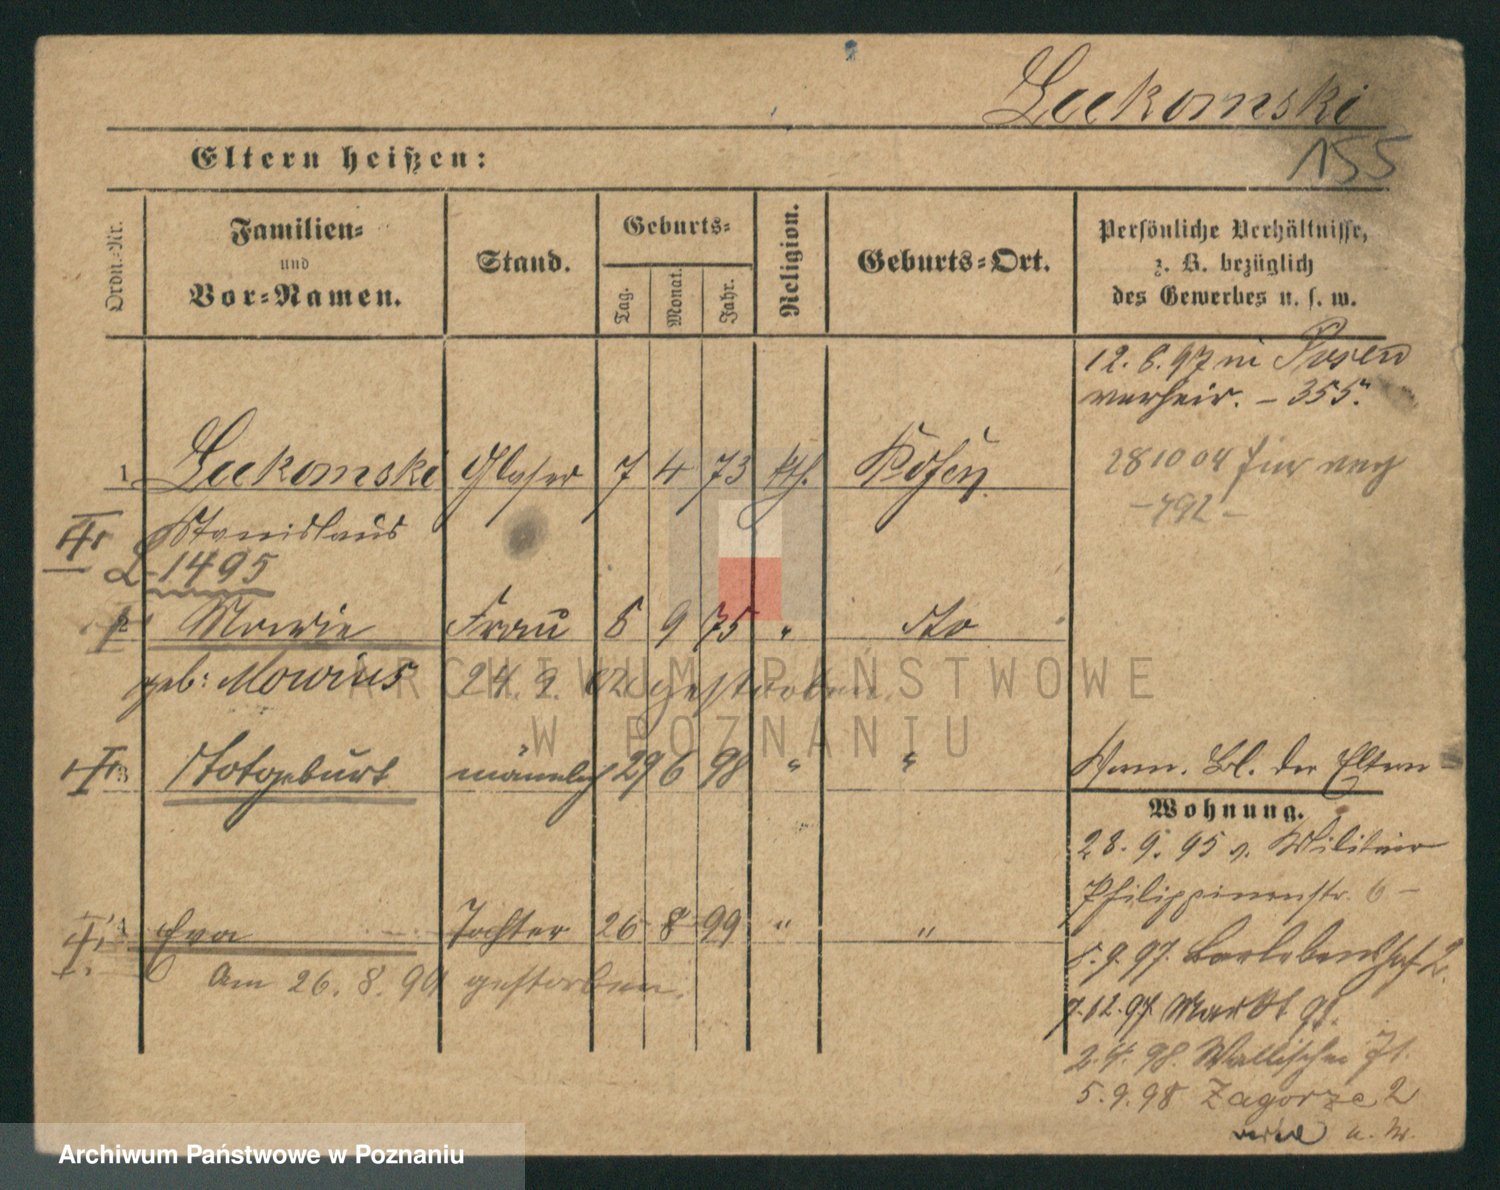 Luekomski
155
Eltern heißen:
Ordn.-Nr.
Familien-
und
Vor-Namen.
Stand.
Geburts-
Tag.
Monat.
Jahr.
Religion.
Geburts-Ort.
Persönliche Verhältnisse,
z. B. bezüglich
des Gewerbes u. s. w.
12. 6. 97 in Posen
verheir. - 355.
1 Luekomski Glaser 7 4 73 kth. Posen
28 10 04
- 792 -
Stanislaus
L 1495
2 Marie Frau 8 9 75 " do
geb: Mowius 24. 9. 02 gestorben
3 Totgeburt männlich 29 6 98 " "
Bl. der Eltern
Wohnung.
28. 9. 95 v. Militair
Philippinenstr. 6 -
4 Eva Tochter 26 8 99 " "
Am 26. 8. 99 gestorben.
8. 9. 97. 2.
7. 12. 97 Markt 91.
2. 4. 98. Wallischei 71.
5. 9. 98 Zagorze 2
ARCHIWUM PAŃSTWOWE
W POZNANIU
Archiwum Państwowe w Poznaniu